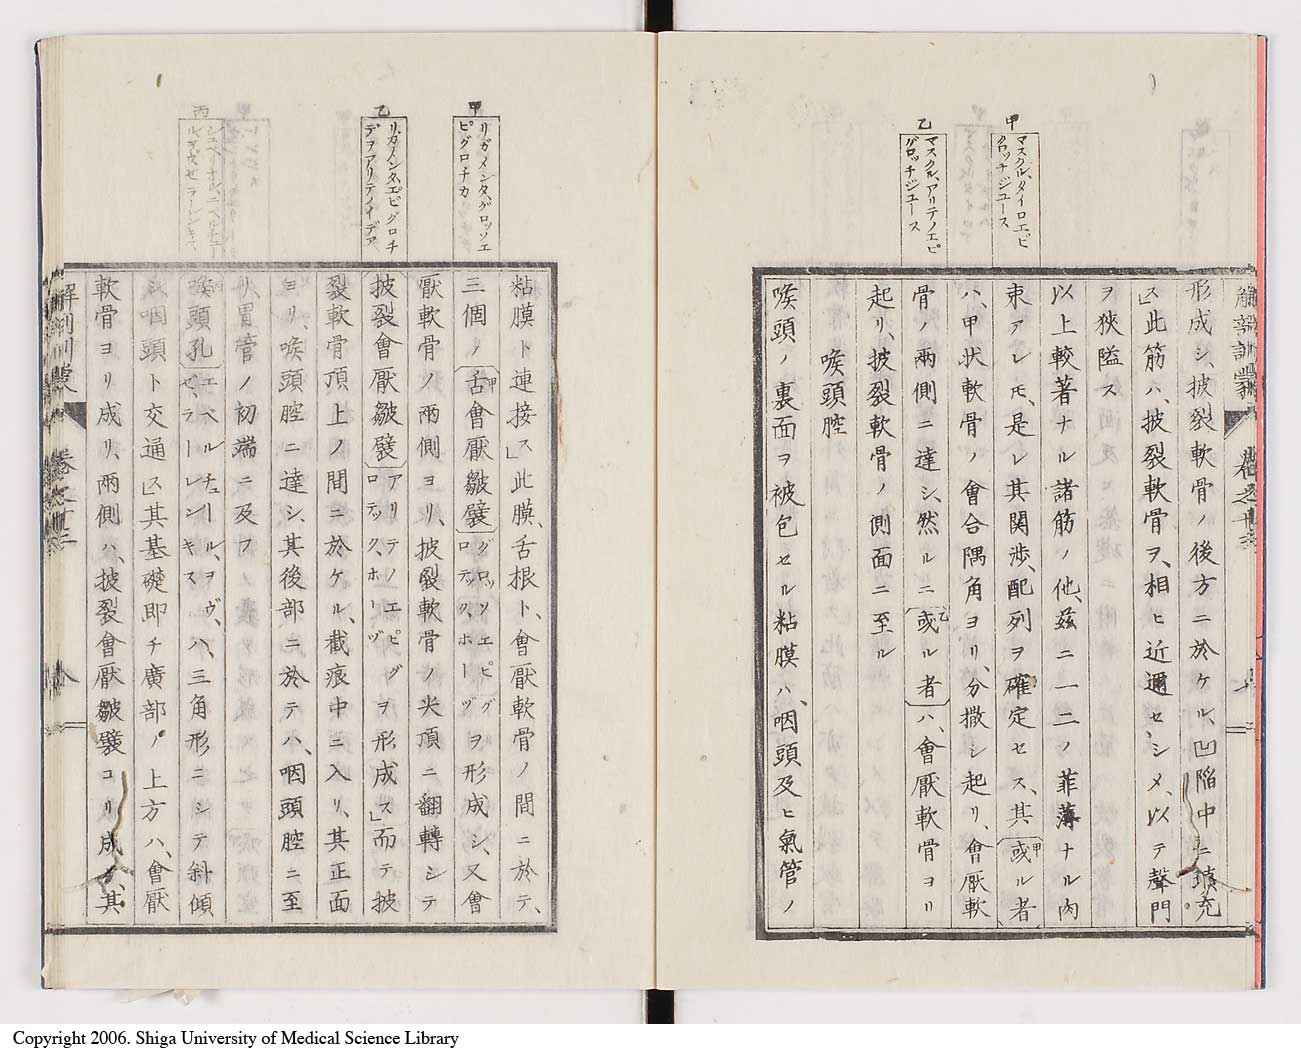 甲
マスクル、タイロエピ
グロッチジュース
乙
マスクル、アリテノエピ
グロッチジュース
形成シ、披裂軟骨ノ後方ニ於ケル、凹陷中ニ塡充
ス」此筋ハ、披裂軟骨ヲ、相ヒ近邇セシメ、以テ聲門
ヲ狹隘ス
以上較著ナル諸筋ノ他、茲ニ一二ノ菲薄ナル肉
束アレ𪜈、是レ其関渉、配列ヲ確定セス、其甲或ル者
ハ、甲状軟骨ノ會合隅角ヨリ、分撒シ起リ、會厭軟
骨ノ兩側ニ達シ、然ルニ乙或ル者ハ、會厭軟骨ヨリ
起リ、披裂軟骨ノ側面ニ至ル
喉頭腔
喉頭ノ裏面ヲ被包セル粘膜ハ、咽頭及ヒ氣管ノ
甲
リガメンタグロッソエ
ピグロチカ
乙
リガメンタ、エピグロチ
デヲアリテノイデア
丙
粘膜ト連接ス」此膜、舌根ト、會厭軟骨ノ間ニ於テ、
三個ノ甲舌會厭皺襞グロッソエピグロテック、ホーヅヲ形成シ、又會
厭軟骨ノ兩側ヨリ、披裂軟骨ノ尖頂ニ翻轉シテ
披裂會厭皺襞アリテノエピグロテック、ホーヅヲ形成ス」而テ披
裂軟骨頂上ノ間ニ於ケル、截痕中ニ入リ、其正面
ヨリ、喉頭腔ニ達シ、其後部ニ於テハ、咽頭腔ニ至
リ胃管ノ初端ニ及フ
喉頭孔エペルチュール、ヲヴ、ゼ、ラーレンキスハ、三角形ニシテ斜傾
シ咽頭ト交通ス」其基礎即チ廣部ノ上方ハ、會厭
軟骨ヨリ成リ、兩側ハ、披裂會厭皺襞ヨリ成リ、其
Copyright 2006. Shiga University of Medical Science Library